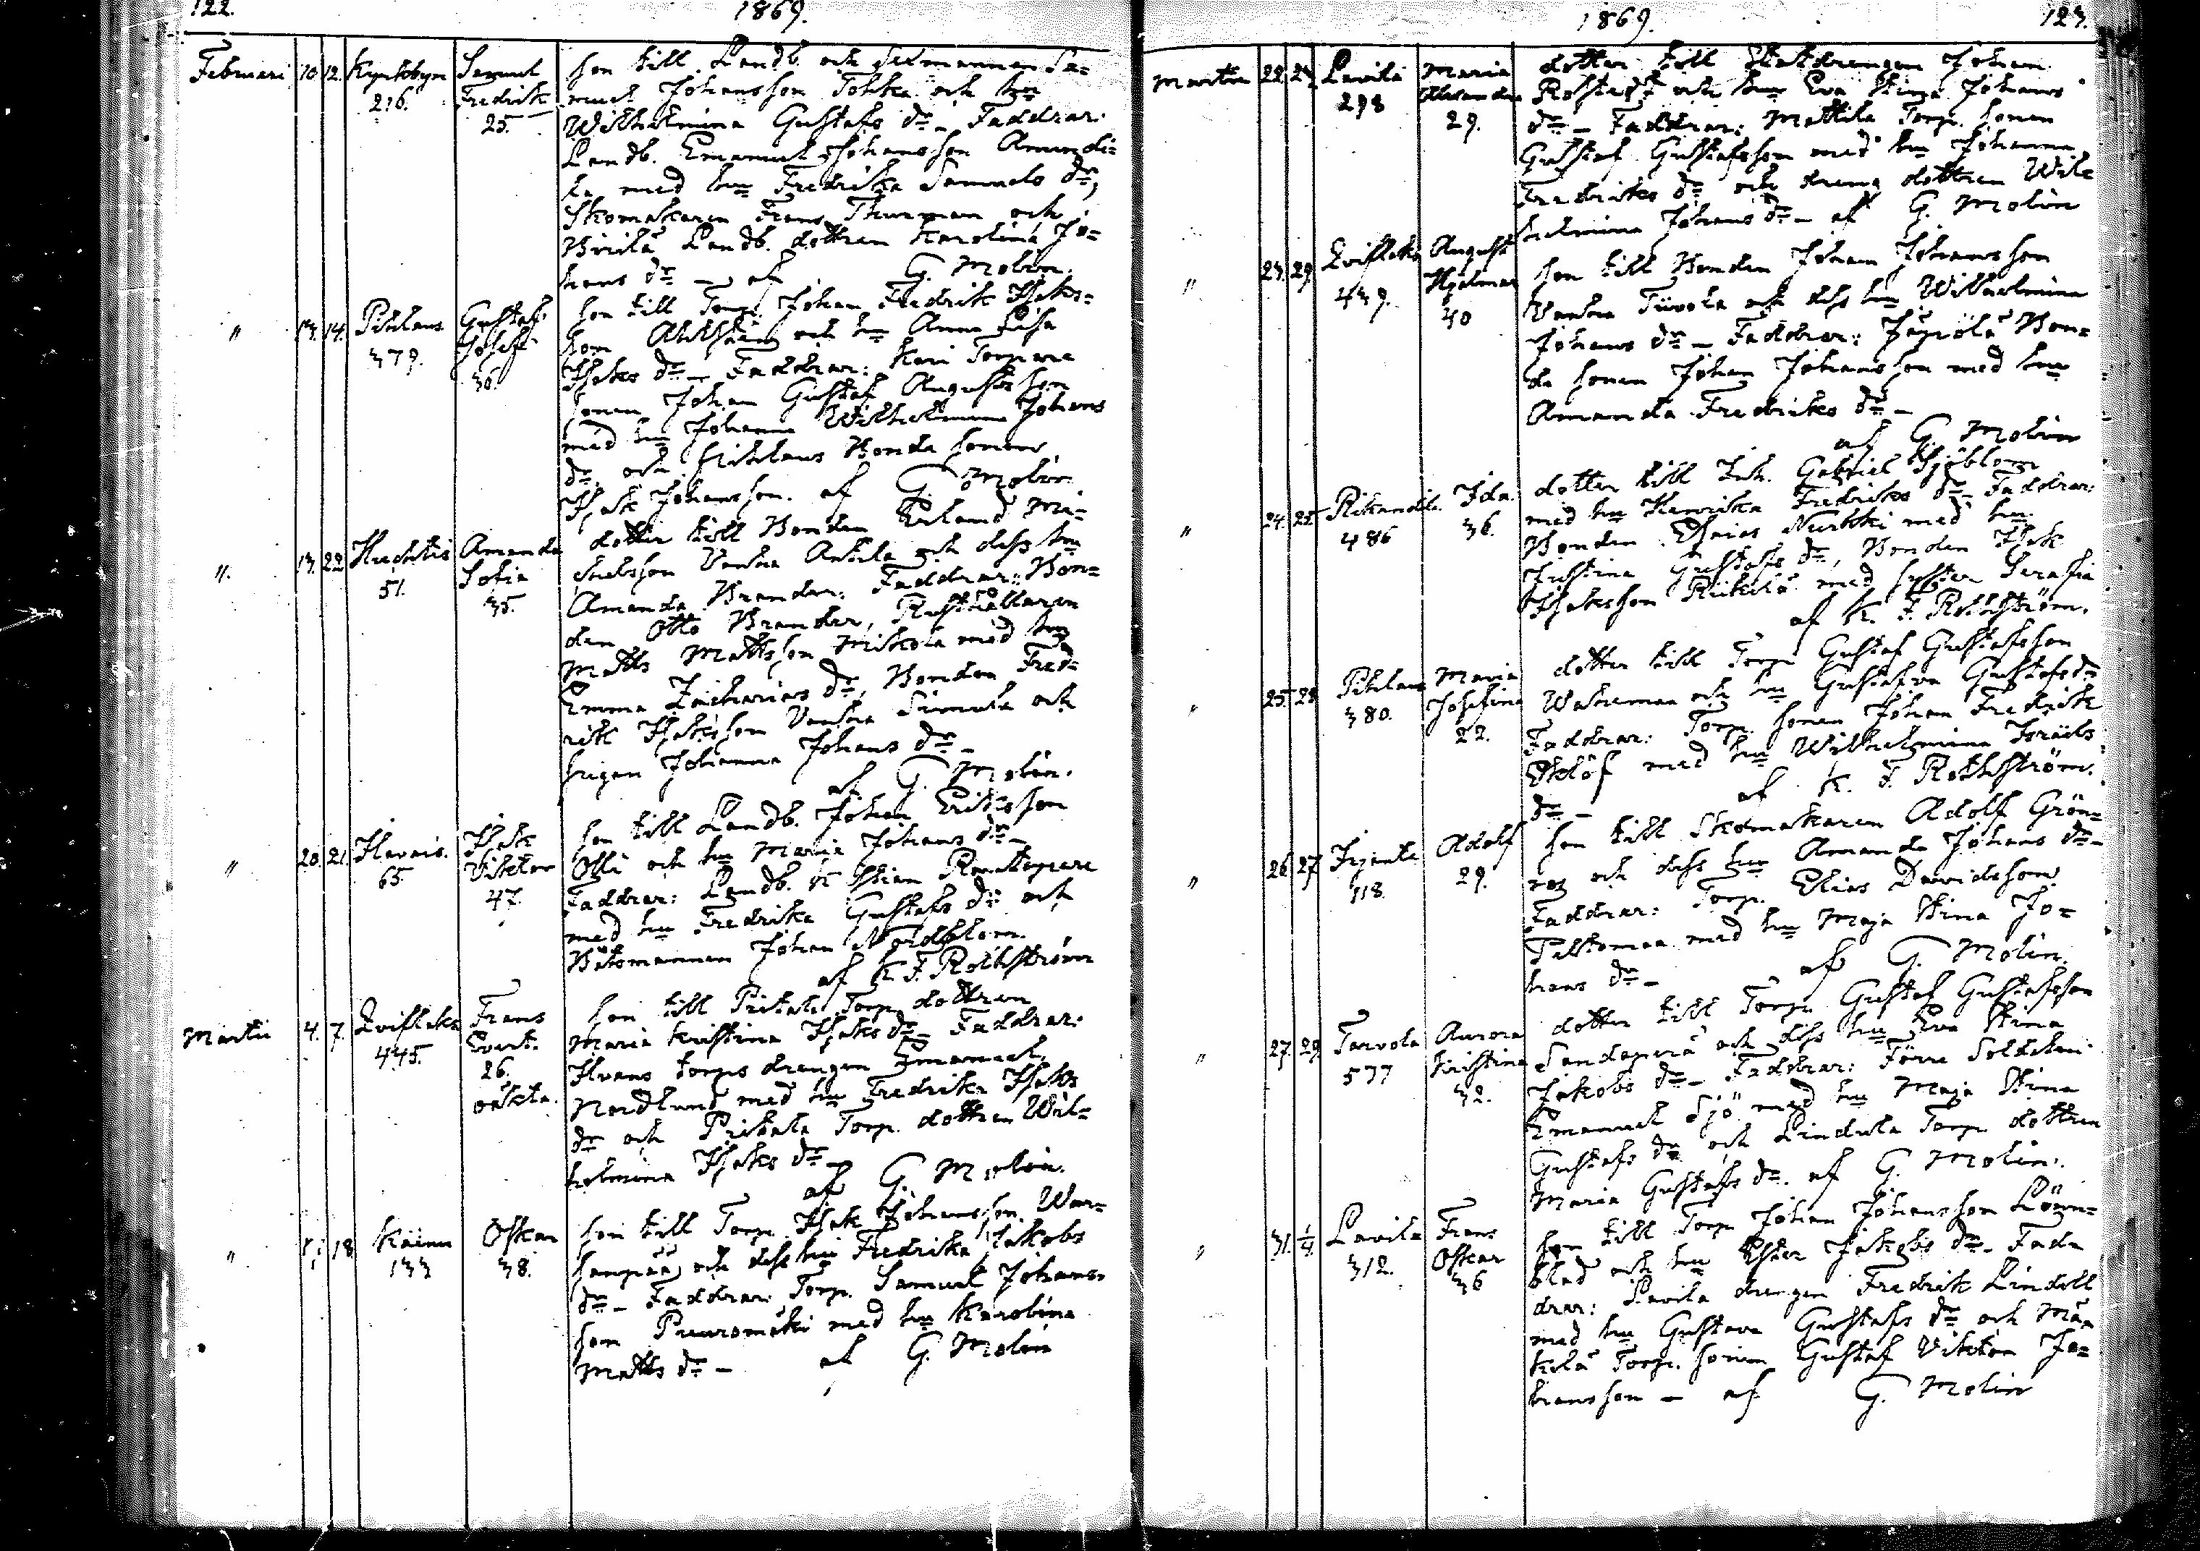 122.
1869.
Februari 10 12. Kyrkobyn 216. Samuel Fredrik 25.
son till Landb. och Sexmannen Sa=
muel Johansson Tokka och hu
Wilhelmina Gustafs dr - Faddrar:
Landb. Emanuel Johansson
med hu Fredrika Samuels dr,
Skomakaren Frans Thurman och
Landb. dottren Karolina Jo=
hans dr - af G. Molin.
" 13. 14. Pihlaus 379. Gustaf Josef 36.
son till Torp. Johan Fredrik Isaks=
son och hu Anna Lisa
Isaks dr - Faddrar: Kari Torpare
sonen Johan Gustaf Augustsson
med hu Johanna Wilhelmina Johans
dr och Pihlaus Bonda sonen
Isak Johansson. af G. Molin.
" 13. 22 51. Amanda Sofia 35.
dotter till Bonden Erland Mi=
chelsson Vanha Antila och dess hu
Amanda Brander. Faddrar: Bon=
den Otto Brander, Rusthållaren
Matts Mattsson Mikola med hu
Emma Zacharias dr, Bonden Fred=
rik Isaksson Vanha Simula och
pigan Johanna Johans dr -
af G. Molin.
" 20. 21. Hevais. 65. Isak Viktor 47.
son till Landb. Johan Eriksson
Olli och hu Maria Johans dr -
Faddrar: Landb.
med hu Fredrika Gustafs dr och
Båtsmannen Johan Nordblom.
af K. F. Rothström
Martii 4. 7. 445. Frans Evert. 26. oäkta.
son till Torp. dottren
Maria Kristina Isaks dr - Faddrar:
torps drengen Emanuel
Nordlund med hu Fredrika Isaks
dr och Torp. dottren Wil=
helmina Isaks dr -
af G. Molin.
" 18 133 Oskar 38.
son till Torp. Isak Johansson
och dess hu Fredrika Jakobs
dr - Faddrar: Torp. Samuel Johans=
son med hu Karolina
Matts dr - af G. Molin
1869.
123.
Martii 22. 24. Lavila 298 Maria 29.
dotter till Statdrengen Johan
och hu Eva Stina Johans
dr - Faddrar: Mattila Torp. sonen
Gustaf Gustafsson med hu Johanna
Fredriks dr och dreng dottren Wil=
helmina Johans dr - af G. Molin
" 23. 29. 439. August Hjalmar 40
son till Bonden Johan Johansson
Vanha och dess hu Wilhelmina
Johans dr - Faddrar: Jäpölä Bon=
da sonen Johan Johansson med hu
Amanda Fredriks dr -
af G. Molin
" 24. 25. 486 Ida. 36.
dotter till Inh. Gabriel Sjöblom
med hu Henrika Fredriks dr - Faddrar:
Bonden Elias Nurkki med hu
Justina Gustafs dr, Bonden Isak
Isaksson Riikilä med syster Serafia
af K. F. Rothström.
" 25. 28. Pihlaus 380. Maria Josefina 22.
dotter till Torp. Gustaf Gustafsson
och hu Gustafva Gustafs dr
Faddrar: Torp. sonen Johan Fredrik
Eklöf med hu Wilhelmina Israels
dr - af K. F. Rothström.
" 26. 27. 118. Adolf 29.
son till Skomakaren Adolf Grön=
och dess hu Amanda Johans dr -
Faddrar: Torp. Elias Davidsson
Peltomaa med hu Maja Stina Jo=
hans dr - af G. Molin.
" 27. 29. Tarvola 577 Aurora Kristina 32.
dotter till Torp. Gustaf Gustafsson
Sandaperä och dess hu Eva Stina
Jakobs dr - Faddrar: Förre Soldaten
Emanuel Sjö med hu Maja Stina
Gustafs dr och Lindula Torp. dottren
Maria Gustafs dr. af G. Molin.
" 31. 1/4. Lavila 312. Frans Oskar 36
son till Torp. Johan Johansson Lönn=
blad och hu Ester Jakobs dr - Fad=
drar: Lavila drengen Fredrik Lindell
med hu Gustava Gustafs dr och Mä=
kelä Torp. sonen Gustaf Viktor Jo=
hansson - af G. Molin